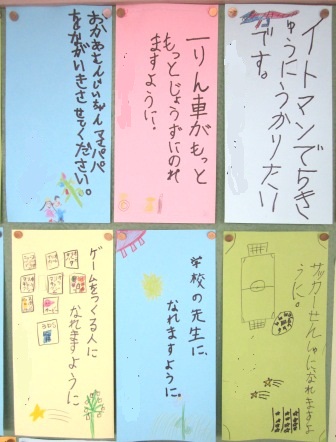 イトマンで5き
ゅうにうかりたい
です。
一りん車がもっと
もっとじょうずにのれ
ますように!
じいちゃん ママパパ
をながいきさせてください。
サッカーせんしゅになれますよ
うに。
学校の先生に、
なれますように。
ゲームをつくる人に
なれますように